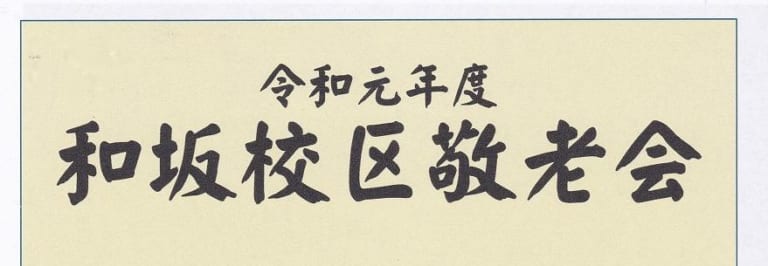 令和元年度
和坂校区敬老会